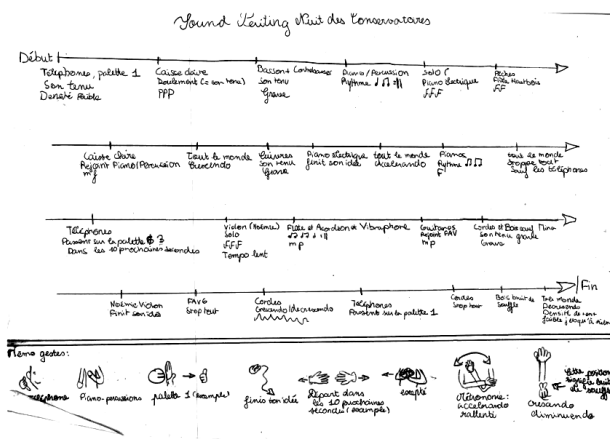 Sound Painting Nuit des Conservatoires
Début
Téléphones, palette 1
Son tenu
Densité faible
Caisse claire
Roulement (= son tenu)
PPP
Basson + Contrebasses
Son tenu
Grave
Piano / Percussion
Rythme
Solo
Piano électrique
FFF
Flûte Hautbois
FF
Caisse claire
Rejoint Piano/Percussion
mf
Tout le monde
Crescendo
Cuivres
Son tenu
Grave
Piano électrique
finit son idée
tout le monde
accelerando
Pianos
Rythme
F
tous le monde
Stoppe tout
Sauf les téléphones
Téléphones
Passent sur la palette 3
Dans les 10 prochaines secondes
Violon (Noémie)
Solo
FFF
Tempo lent
Flûte et Acordéon et Vibraphone
mp
Guitares
Rejoint FAV
mp
Cordes et Bois sauf
Son tenu grave
Noémie Violon
Finit son idée
FAVG
Stop tout
Cordes
Crescendo/decrescendo
Téléphones
Passent sur la palette 1
Cordes
Stop tout
Bois bruit de
souffle
Tout le monde
Decrescendo
Densité de sons
faible jusqu'à rien
Fin
Mémo gestes:
téléphone
Piano-percussions
palette 1 (exemple)
finis ton idée
Départ dans
les 10 prochaines
secondes (exemple)
sauf
Métronome:
accelerando
rallenti
crescendo
diminuendo
position
bruit
de souffle